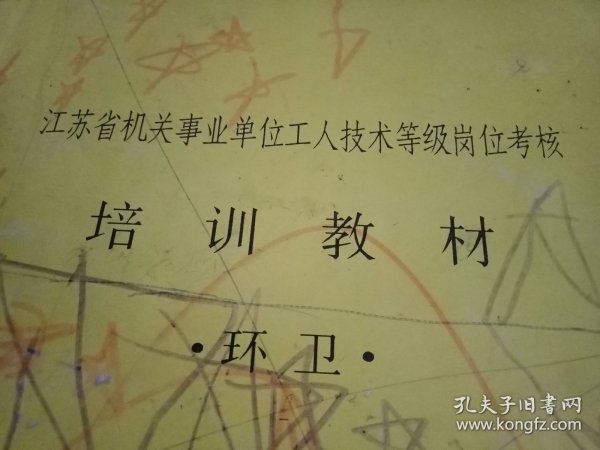 江苏省机关事业单位工人技术等级岗位考核
培训教材
·环卫·
孔夫子旧书网
www.kongfz.com